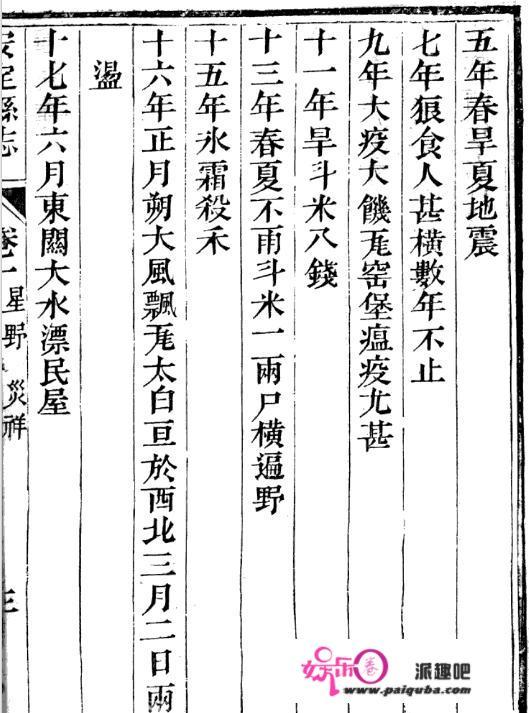 五年春旱夏地震
七年狼食人甚橫數年不止
九年大疫大饑瓦窑堡瘟疫尤甚
十一年旱斗米八錢
十三年春夏不雨斗米一兩尸橫遍野
十五年氷霜殺禾
十六年正月朔大風飄瓦太白亘於西北三月二日雨
温
十七年六月東關大水漂民屋
安定縣志 卷一 星野 災祥 三
娱乐圈 派趣吧
www.paiquba.com